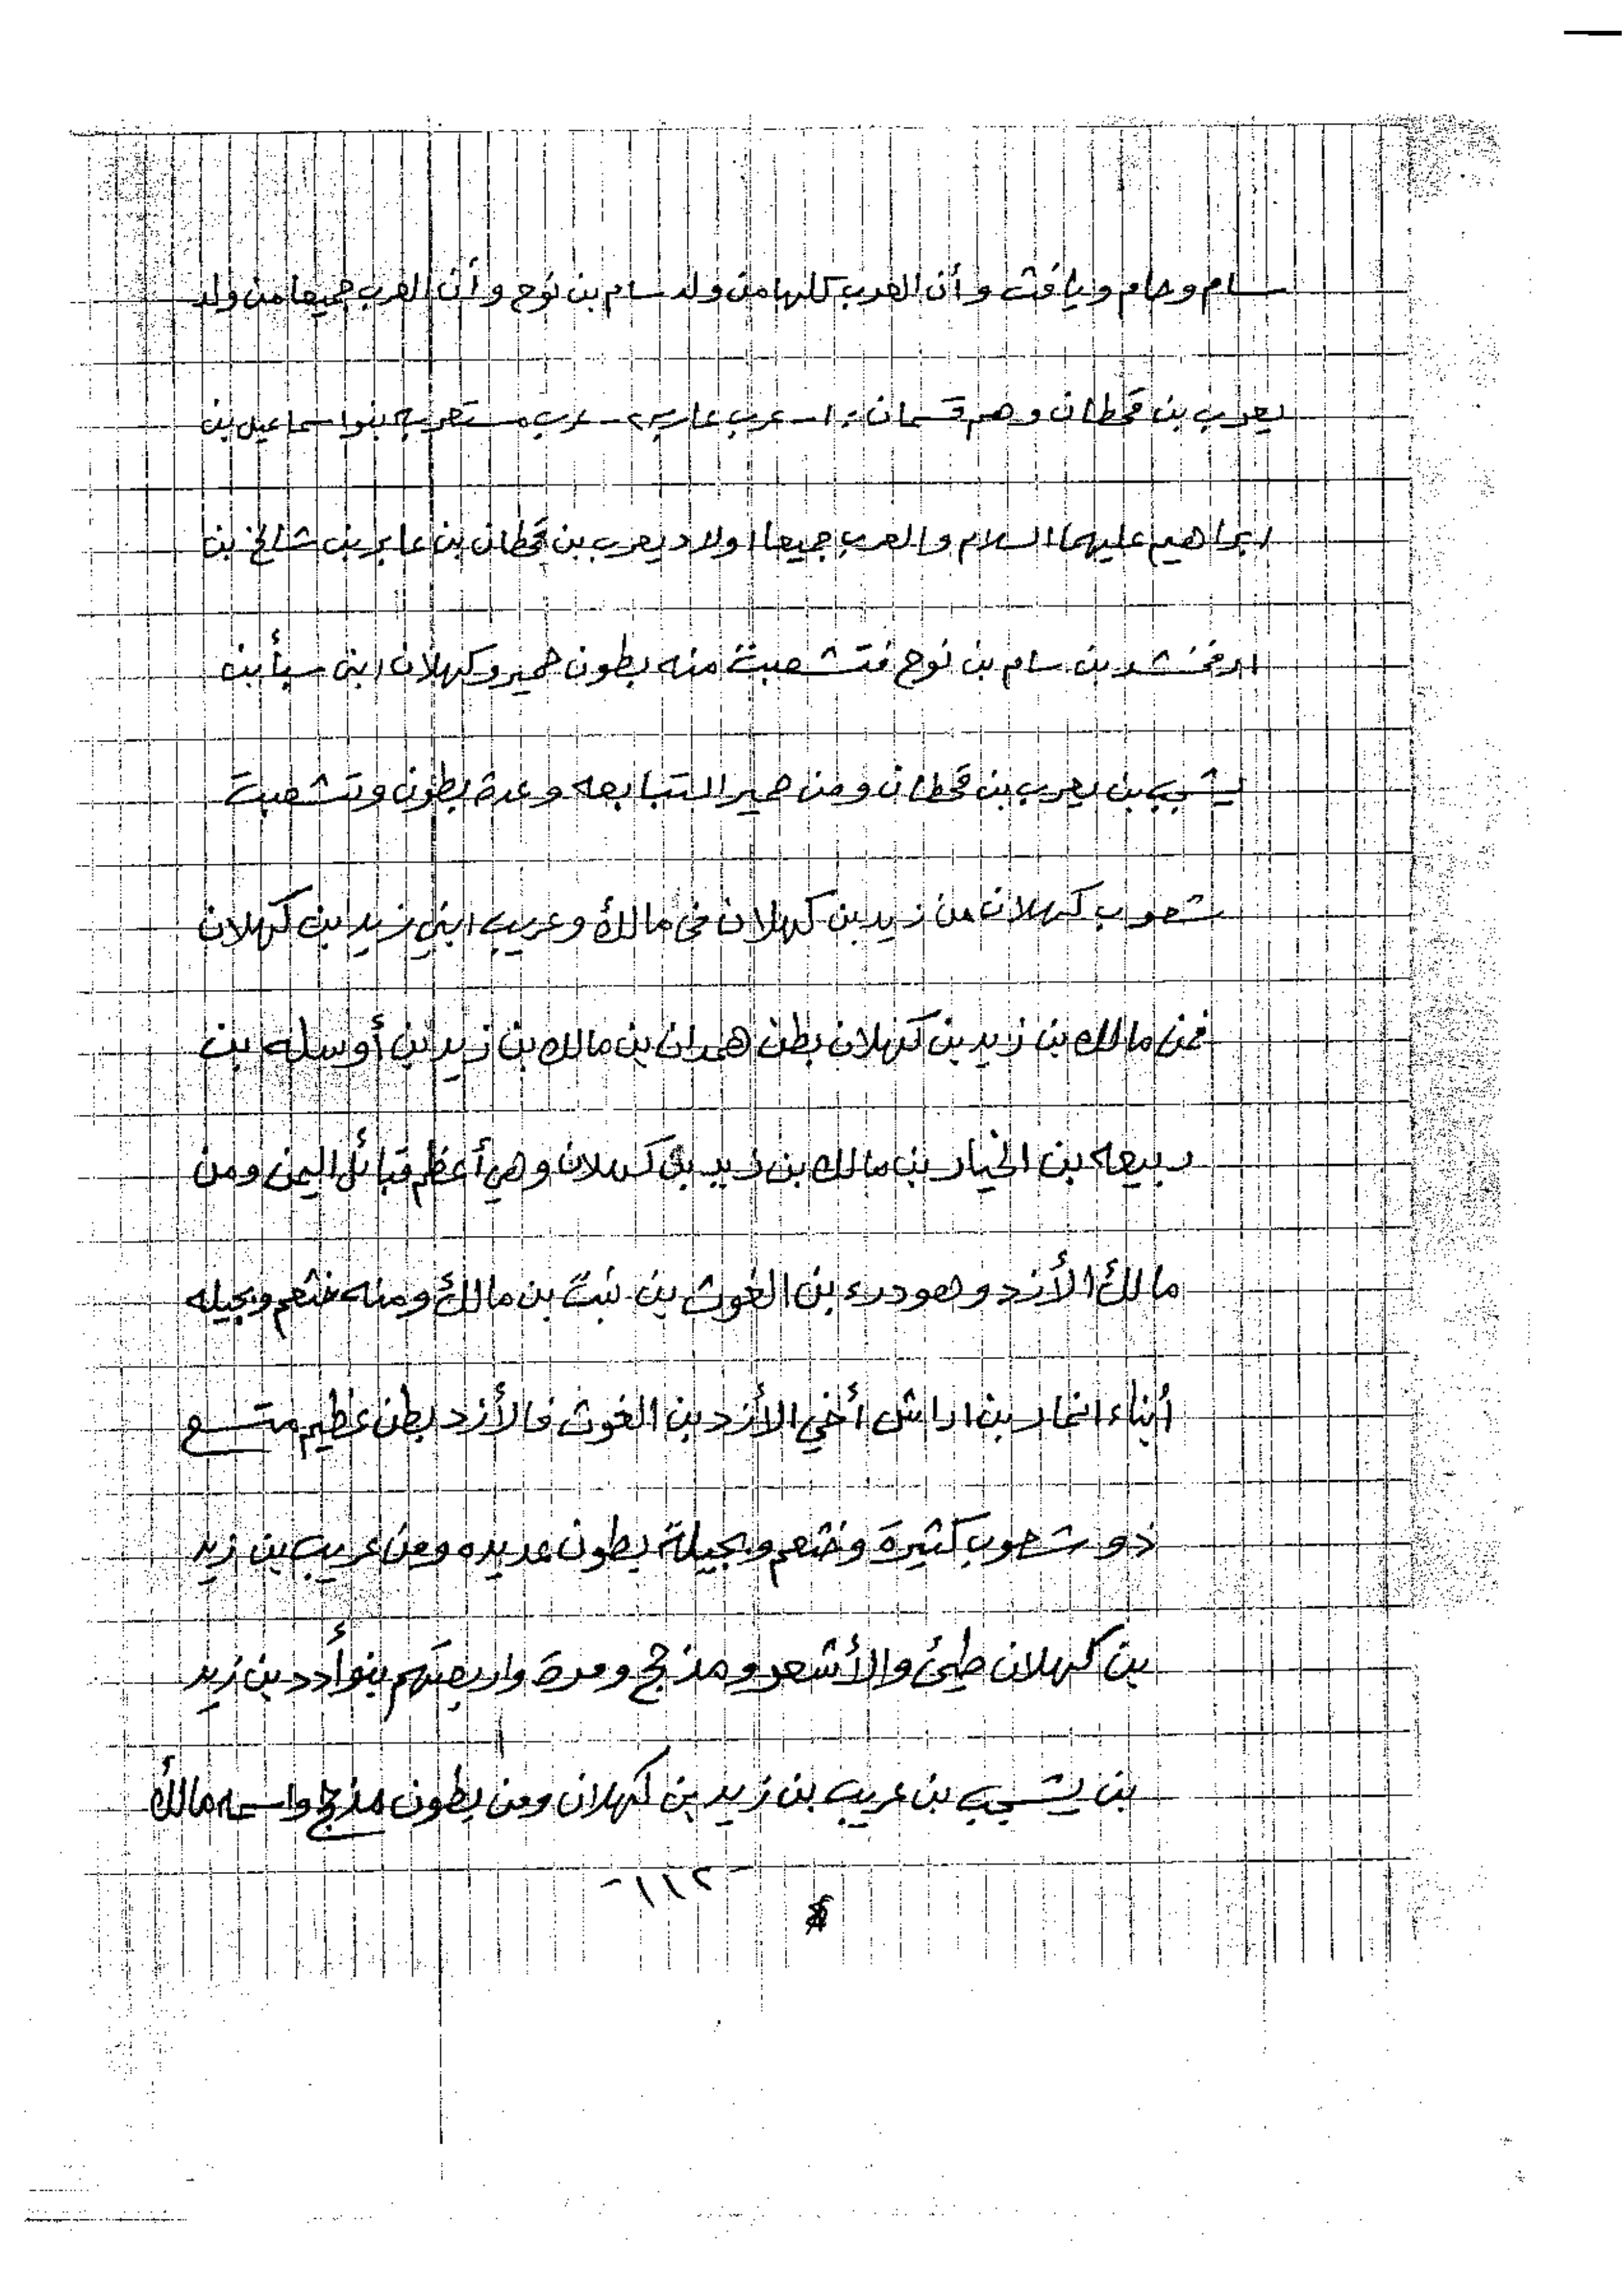 سام وحام ويافث وأن العرب كلها من ولد سام بن نوح وأن العرب جميعا من ولد
يعرب بن قحطان وهم قسمان : ١- عرب عاربه ٢- عرب مستعربه بنوا اسماعيل بن
ابراهيم عليهما السلام والعرب جميعا اولاد يعرب بن قحطان بن عابر بن شالخ بن
ارفخشد بن سام بن نوح فتشعبت منه بطون حمير وكهلان ابني سبأ بن
يشجب بن يعرب بن قحطان ومن حمير التبابعه وعدة بطون وتشعبت
شعوب كهلان من زيد بن كهلان في مالك وعريب ابني زيد بن كهلان
فمن مالك بن زيد بن كهلان بطن همدان بن مالك بن زيد بن أوسله بن
ربيعه بن الخيار بن مالك بن زيد بن كهلان وهي أعظم قبائل اليمن ومن
مالك الأزد وهو درء بن الغوث بن نبت بن مالك ومنه خثعم وبجيله
أبناء انمار بن اراش أخي الأزد بن الغوث فالأزد بطن عظيم متسع
ذو شعوب كثيرة وخثعم وبجيلة بطون عديده ومن عريب بن زيد
بن كهلان طيئ والأشعر ومذحج ومرة واربعتهم بنو أدد بن زيد
بن يشجب بن عريب بن زيد بن كهلان ومن بطون مذحج واسمه مالك
-١١٢-